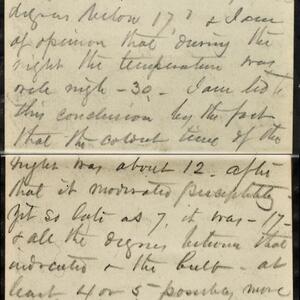 degrees below 17° & I am
of opinion that during the
night the temperature was
well nigh - 30. I am led to
this conclusion by the fact
that the coldest time of the
night was about 12. after
that it moderated perceptibly.
yet so late as 7, it was - 17 -
& all the degrees between that
indicated & the bulb - at
least 4 or 5 possibly more